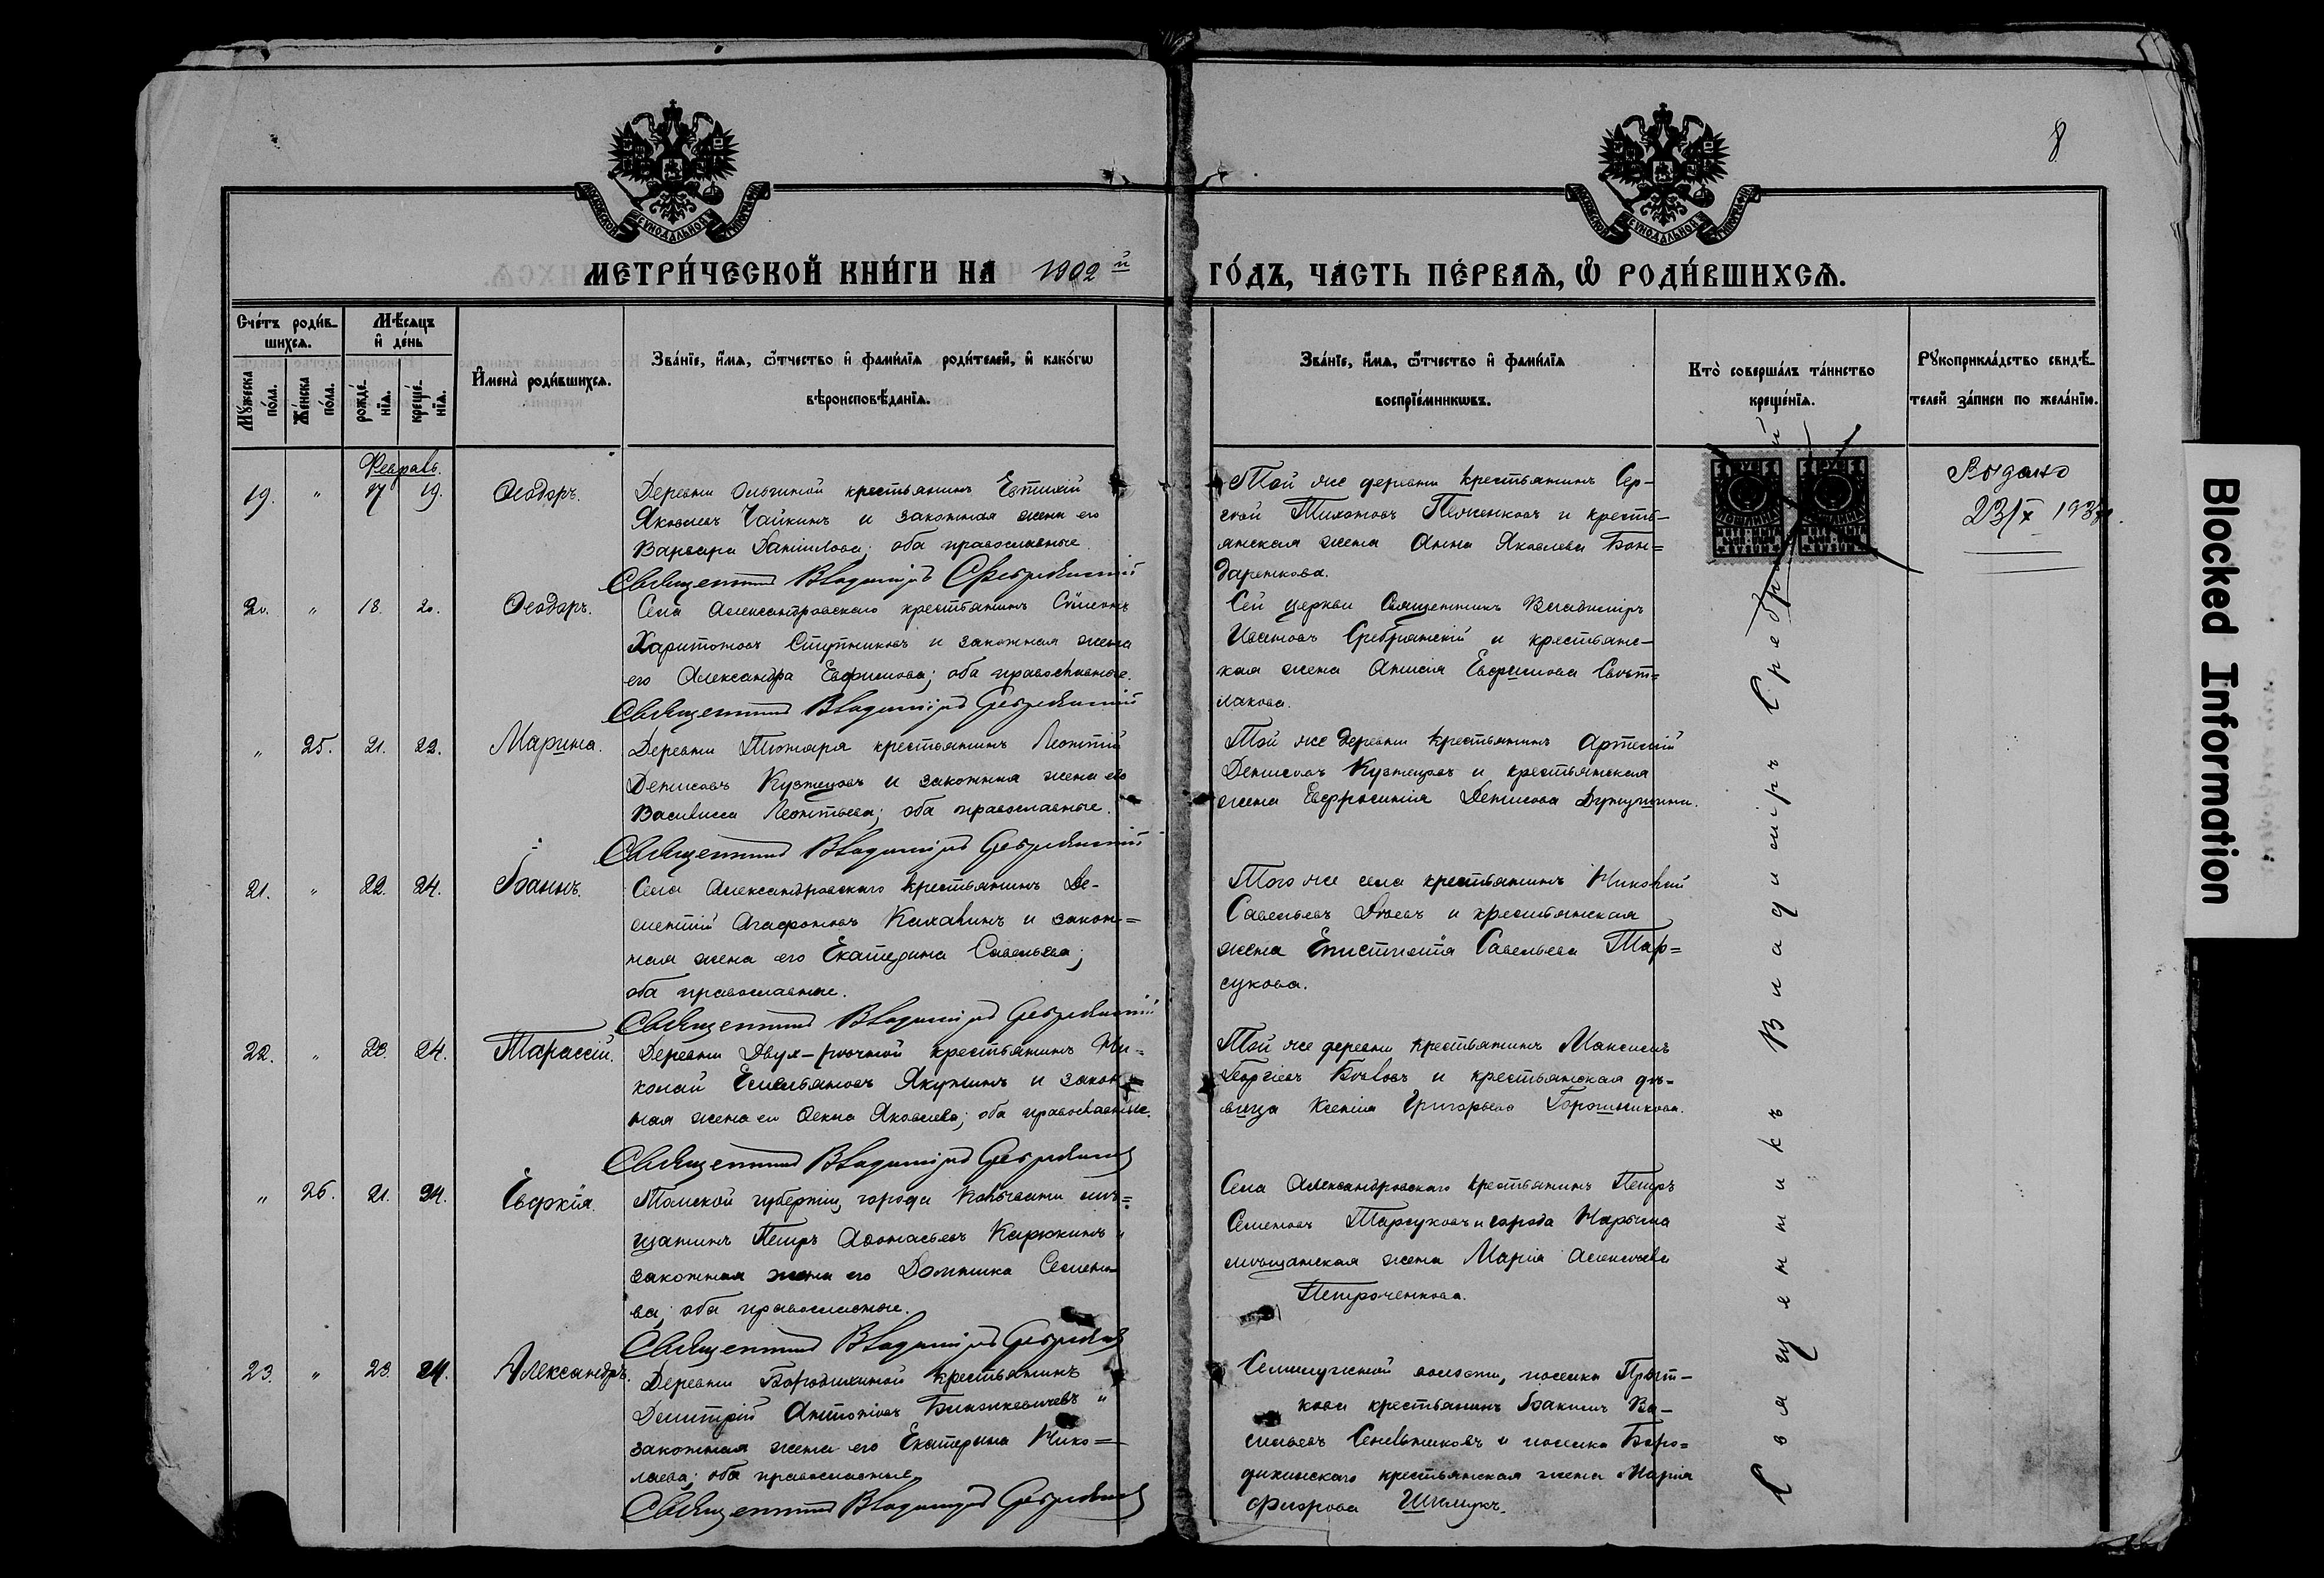 8
МЕТРИ́ЧЕСКОЙ КНИ́ГИ НА 1902 й
ГО́ДЪ, ЧА́СТЬ ПЕ́РВАѦ, Ѡ҆ РОДИ́ВШИХСѦ.
Сче́тъ роди́в-
шихсѧ.
Мꙋ́жеска по́ла.
Же́нска по́ла.
Мѣ́сѧцъ и҆ де́нь
рожде́-нїѧ.
креще́-нїѧ.
И҆мена̀ роди́вшихсѧ.
Зва́нїе, и҆́мѧ, ѻ҆́тчество и҆ фами́лїѧ роди́телей, и҆ како́гѡ
вѣроисповѣ́данїѧ.
Зва́нїе, и҆́мѧ, ѻ҆́тчество и҆ фами́лїѧ
воспрїе́мникѡвъ.
Кто̀ соверша́лъ та́инство
креще́нїѧ.
Рꙋкоприкла́дство свидѣ́-
телей за́писи по жела́нїю.
Февраль.
19. " 17 19. Ѳеодоръ.
Деревни Ольгиной крестьянинъ Евтихій
Яковлевъ Чайкинъ и законная жена его
Варвара Данiилова; оба православные
Священникъ Владиміръ Сребрянскій
Той же деревни крестьянинъ Сер-
гѣй Тихоновъ и кресть-
янская жена Анна Яковлева Бон=
даренкова.
Выдано
23/X
20. " 18. 20. Ѳеодоръ.
Села Александровскаго крестьянинъ Сѵмеонъ
Харитоновъ Ступниковъ и законная жена
его Александра Евфимова; оба православные.
Священникъ Владиміръ Сребрянскій
Сей церкви Священникъ Владиміръ
Ивановъ Сребрянскій и крестьянс-
кая жена Анисія Евфимова Свѣт=
лакова.
" 25. 21. 22. Марина.
Деревни крестьянинъ Леонтій
Денисовъ Кузнецовъ и законная жена его
Василисса Леонтьева; оба православные.
Священникъ Владиміръ Сребрянскій
Той же деревни крестьянинъ Артемій
Денисовъ Кузнецовъ и крестьянская
жена Евфросинія Денисова
21. " 22. 24. Іоаннъ.
Села Александровскаго крестьянинъ Де-
ментій Агафоновъ и закон=
ная жена его Екатерина Савельева;
оба православные.
Священникъ Владиміръ Сребрянскій
Того же села крестьянинъ
Савельевъ и крестьянская
жена Епистимія Савельева Тар=
сукова.
22. " 23. 24. Тарассій.
Деревни Двух-рѣчной крестьянинъ Ни-
колай Емельяновъ Якунинъ и закон=
ная жена его Ѳекла Яковлева; оба православные.
Священникъ Владиміръ Сребрянскій
Той же деревни крестьянинъ Максимъ
Георгіевъ и крестьянская дѣ-
вица Ксенія Григорьева
" 26. 21. 24. Евдокія.
Томской губерніи, города Колывани мѣ=
щанинъ Петръ Аѳонасьевъ Карюкинъ и
законная жена его Домника Семено-
ва; оба православные.
Священникъ Владиміръ Сребрянскій
Села Александровскаго крестьянинъ Петръ
Семеновъ Тарсуковъ и города Нарыма
мѣщанская жена Марія Алексѣева
Петроченкова.
23. " 23. 24. Александръ.
Деревни Бородихиной крестьянинъ
Димитрій Антоніевъ и
законная жена его Екатерина Нико=
лаева; оба православные
Священникъ Владиміръ Сребрянскій
волости, поселка
крестьянинъ Іоакимъ Ва-
сильевъ и поселка Боро=
дихинскаго крестьянская жена Марія
Шимукъ.
Священникъ Владиміръ Сребрянскій
Blocked Information